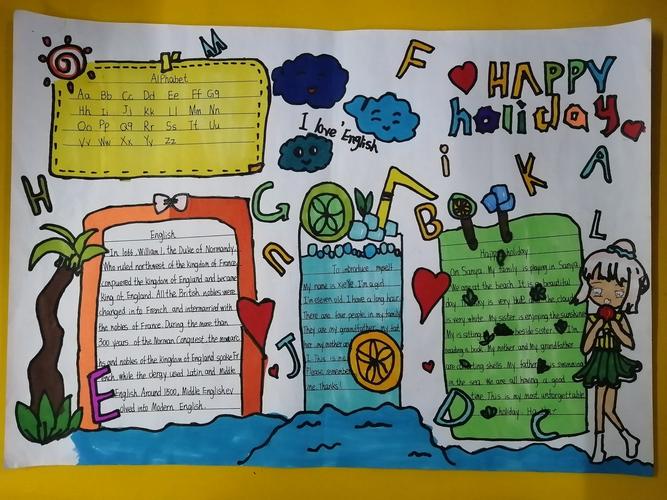 M
F
HAPPY
holiday
Alphabet
Aa Bb Cc Dd Ee Ff Gg
Hh Ii Jj Kk Ll Mm Nn
Oo Pp Qq Rr Ss Tt Uu
Vv Ww Xx Yy Zz
I love English
i
K
A
H
G
B
L
n
J
E
D
C
English
In 1066, William I, the Duke of Normandy,
Who ruled northwest of the kingdom of France
conquered the kingdom of England and became
King of England. All the British nobles were
changed into French, and intermarried with
the nobles of France. During the more than
300 years of the Norman Conquest, the monarc
hs and nobles of the kingdom of England spoke Fr
ench, while the clergy used Latin and Middle
English. Around 1500, Middle English ev
olved into Modern English.
To introduce myself
My name is I'm a girl.
I'm eleven old. I have a long hair.
There are people in my family.
They are my grandfather, my fat
her, my mother and
I. This is me
Please remember
me. Thanks!
Happy holiday
On Sanya. My family is playing in Sanya.
We are at the beach. It is a beautiful
day. sky is very blue. the cloud
is very white. My sister is enjoying the sunshine
My is sitting beside sister I'm
reading a book. My mother and My grandfather
are collecting shells. My father is swimming
in the sea. We are all having a good
time. This is my most unforgettable
holiday. Ha